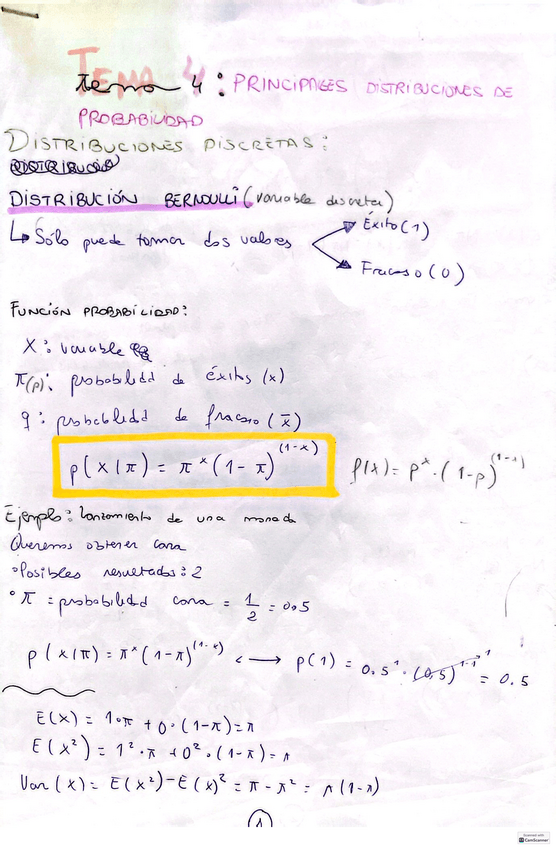 Tema 4: PRINCIPALES DISTRIBUCIONES DE
PROBABILIDAD
DISTRIBUCIONES DISCRETAS:
DISTRIBUCIÓN BERNOULLI (variable discreta)
↳ Sólo puede tomar dos valores
Éxito (1)
Fracaso (0)
FUNCIÓN PROBABILIDAD:
X: variable
π(p): probabilidad de éxitos (x)
q: probabilidad de fracaso (x̄)
p(x|π) = π^x (1-π)^(1-x)
f(x) = p^x · (1-p)^(1-x)
Ejemplo: lanzamiento de una moneda
Queremos obtener cara
° Posibles resultados: 2
° π = probabilidad cara = 1/2 = 0,5
p(x|π) = π^x (1-π)^(1-x) ⟶ p(1) = 0.5^1 · (0,5)^1-1 = 0.5
E(x) = 1·π + 0·(1-π) = π
E(x²) = 1²·π + 0²·(1-π) = π
Var(x) = E(x²) - E(x)² = π - π² = π(1-π)
1
Scanned with
CamScanner